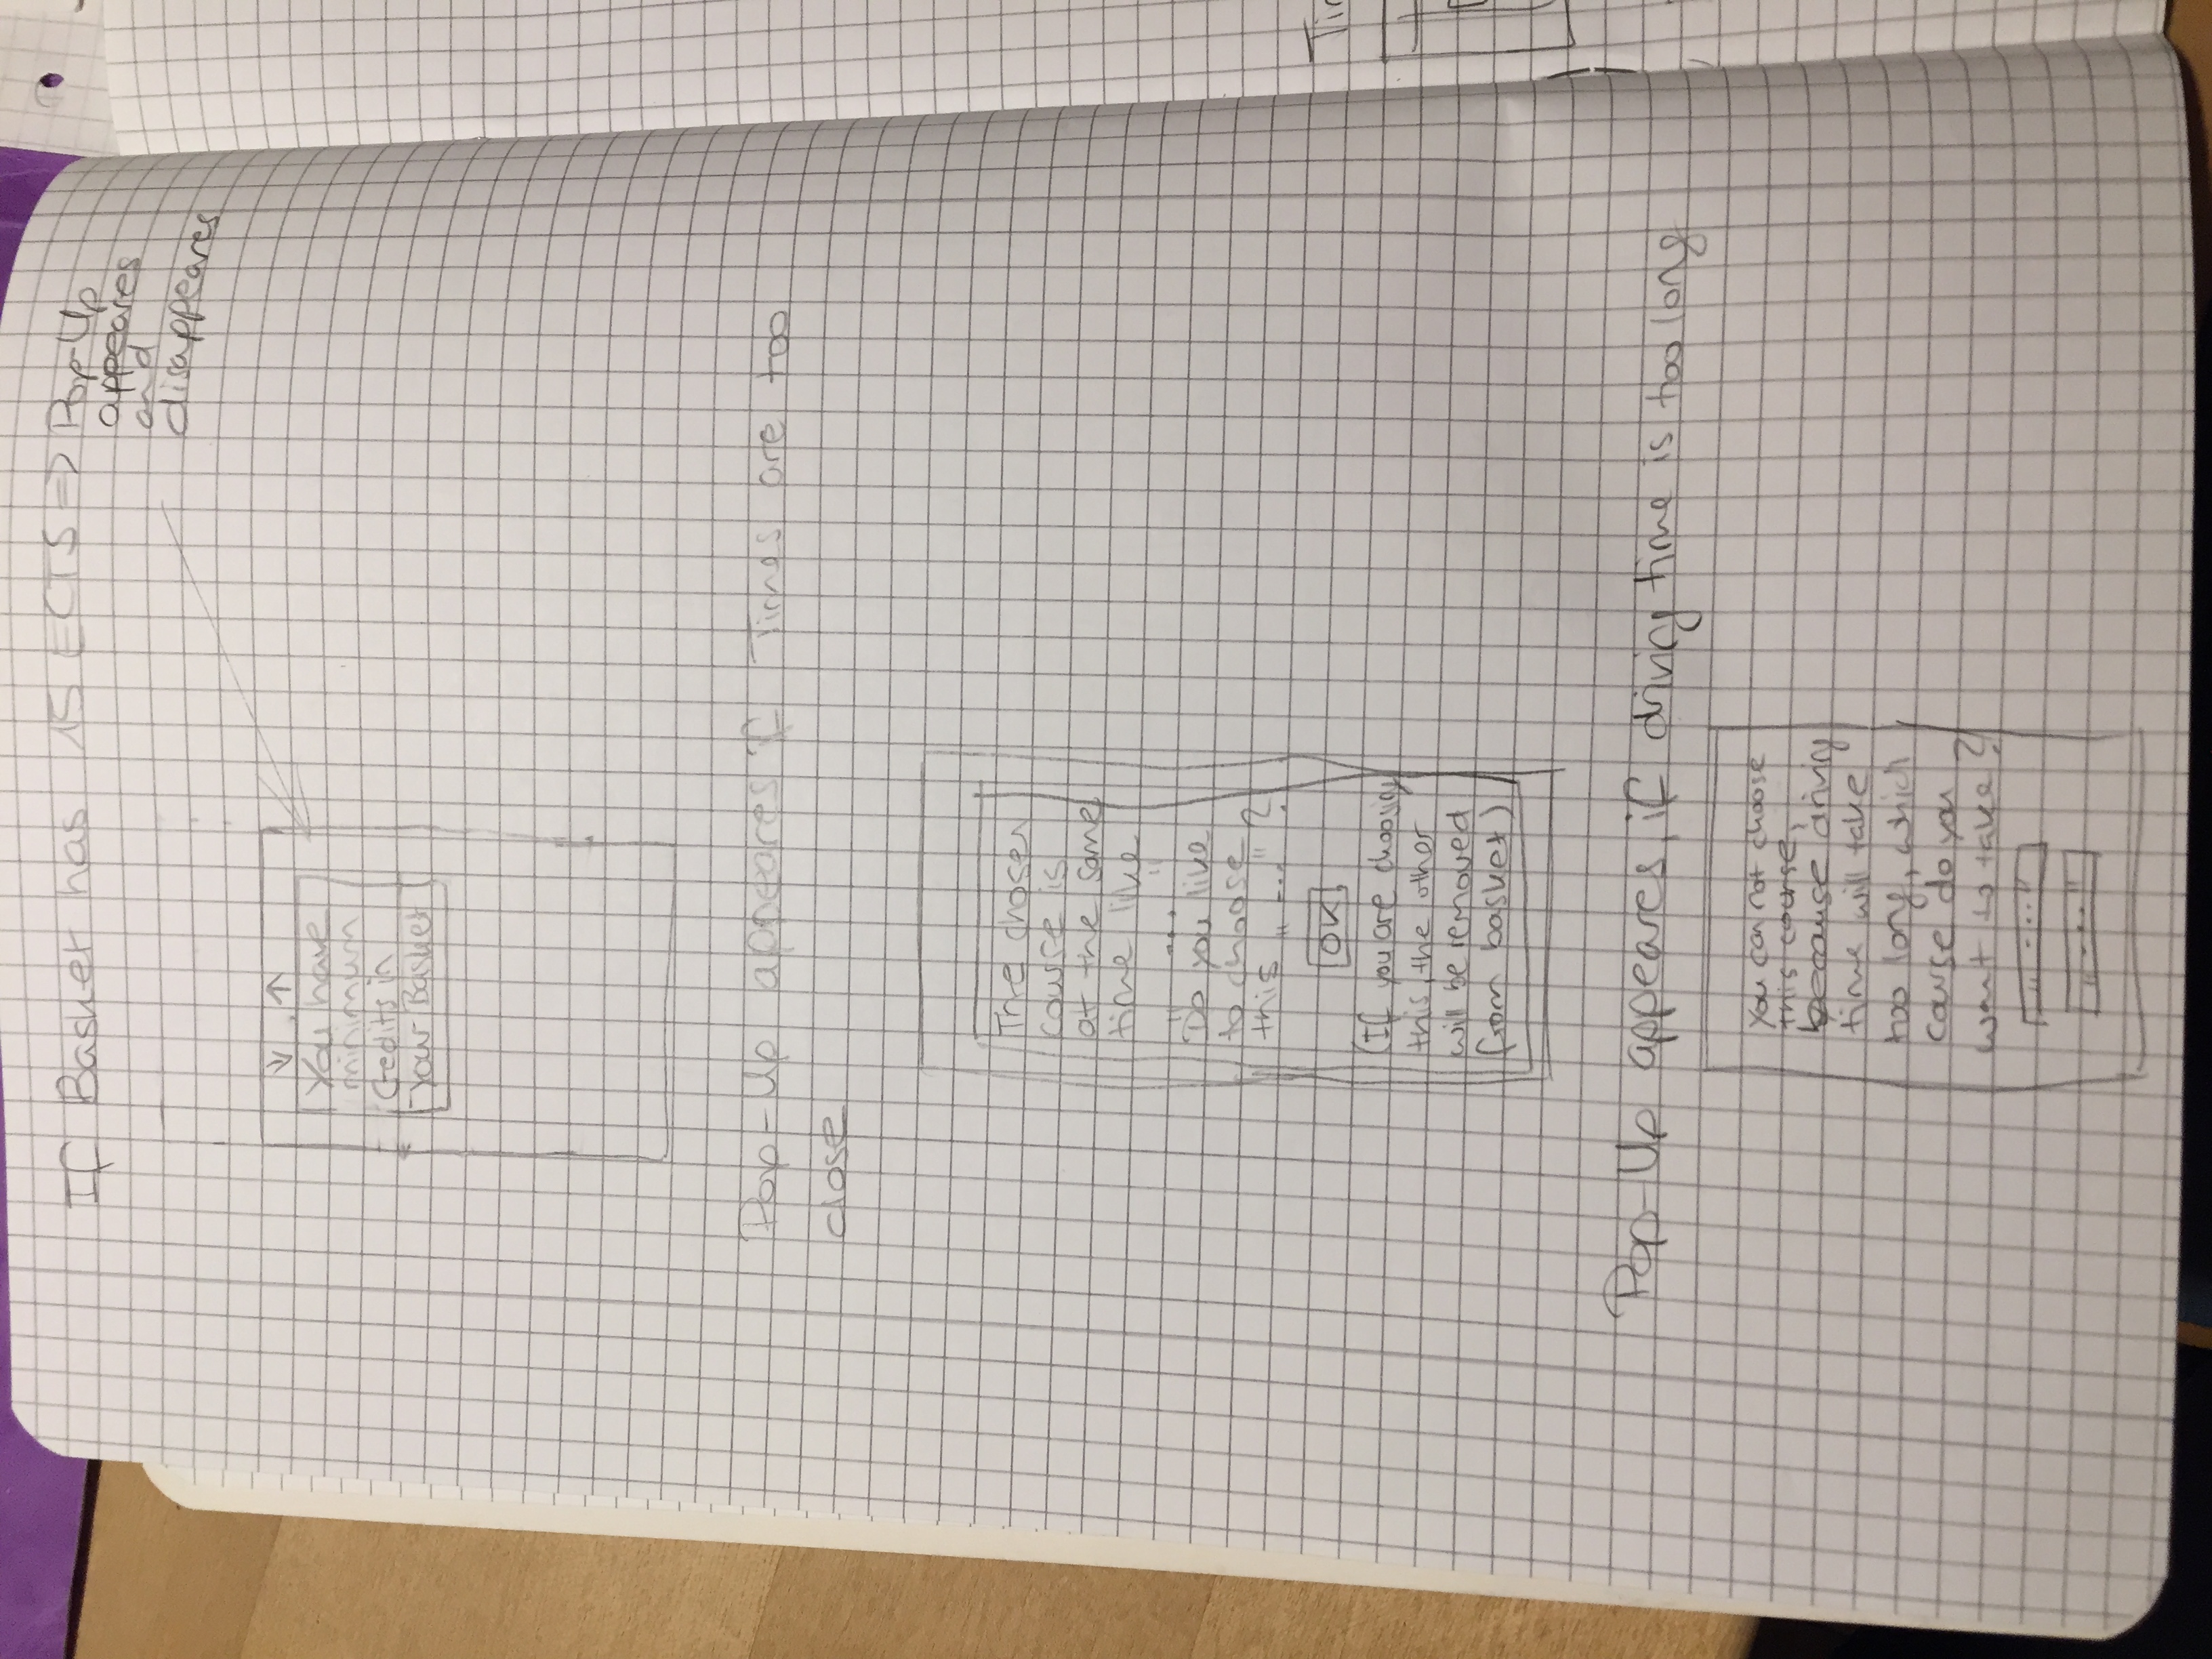 If Basket has 15 ECTS => Pop-Up
appeares
and
disappeares
↓ ↑
You have
minimum
Credits in
Your Basket
Pop-Up appeares if Times are too
close
The chosen
course is
at the same
time like
„ ... "
Do you like
to choose
this „ ... " ?
OK
(If you are choosing
this, the other
will be removed
from basket)
Pop-Up appeares, if driving time is too long
You can not choose
this course,
because driving
time will take
too long, which
course do you
want to take?
„ ... "
„ ... "